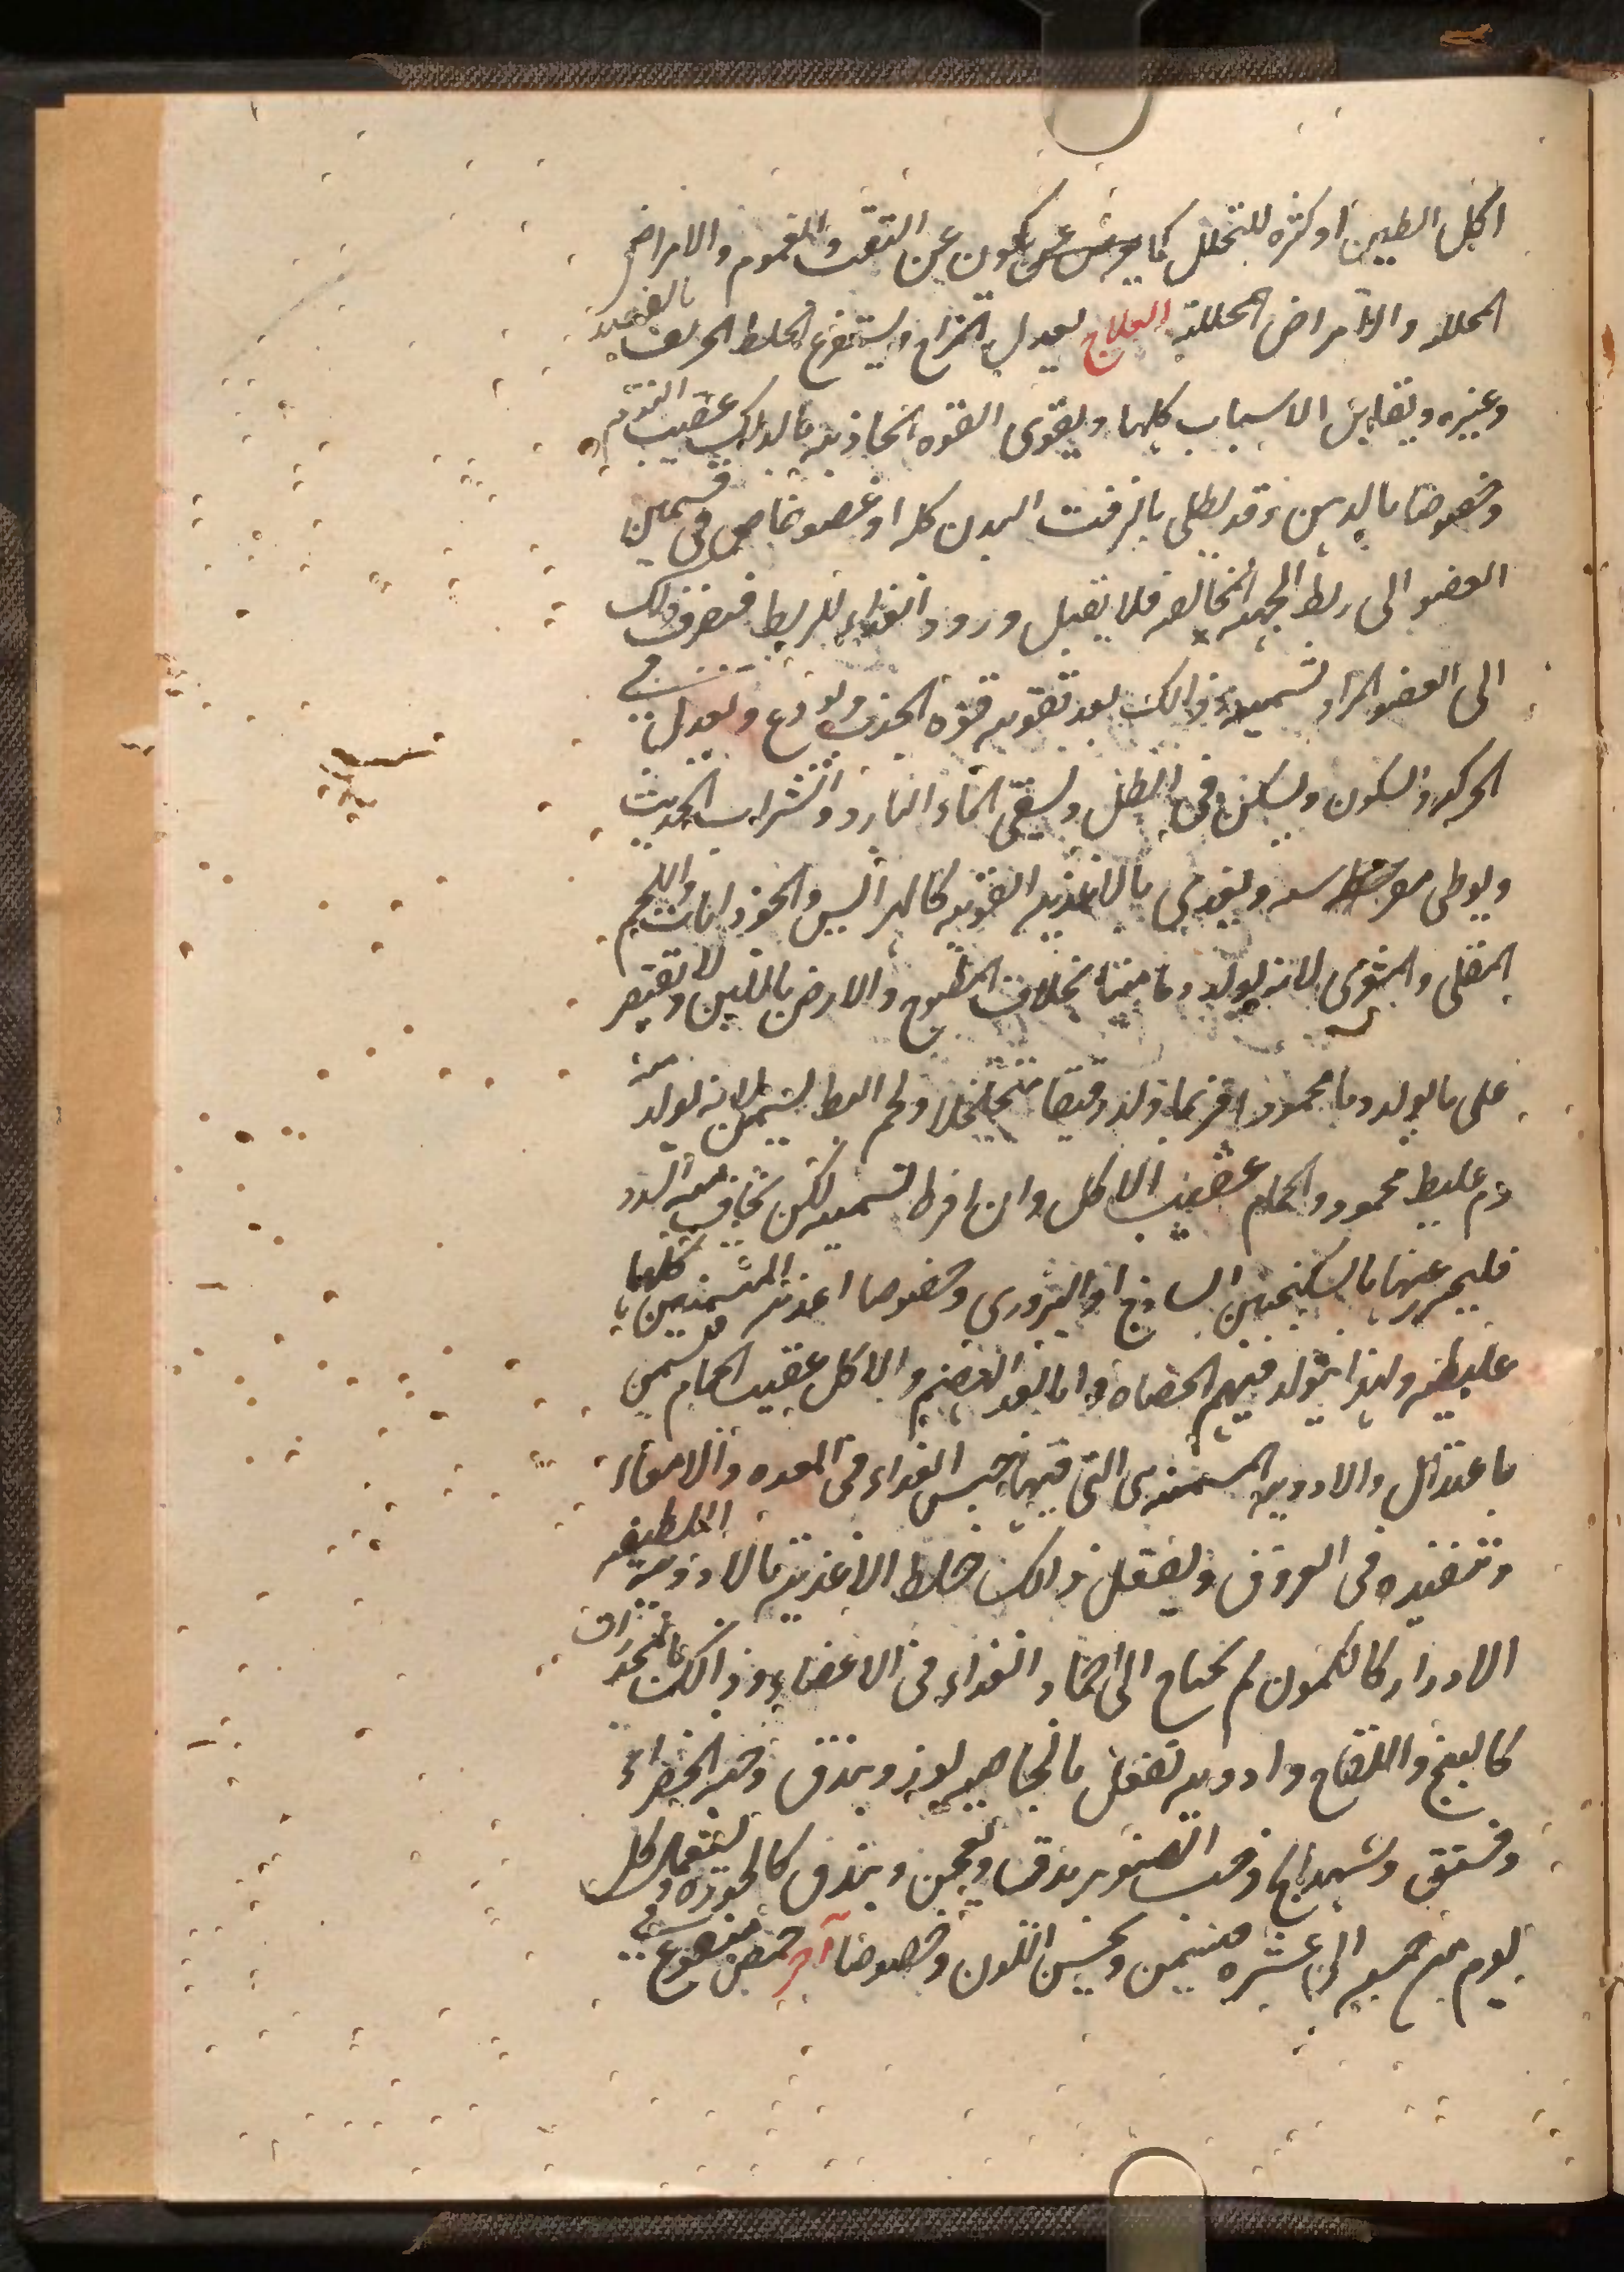 اكل الطين او كثره للتحلل كما يكون عن التعب والغموم والامراض
المحللة والامراض المحللة العلاج يعدل المزاج ويستفرغ الخلط الحريف بالفصد
وغيره ويقابل الاسباب كلها ويقوى القوه الجاذبه بالدلك عقيب النوم
وخصوصا بالدهن وقد يطلى بالزفت البدن كله او عضو خاص فى تسمين
العضو الى ربط الجهه المخالفه فلا يقبل ورود الغذاء للربط فينصرف ذلك
الى العضو المراد تسمينه وذالك بعد تقويه قوه الجذب ويودع ويعدل فى
الحركه والسكون ويسكن فى الظل ويسقى الماء البارد والشراب الحديث
ويوطى ويغذى بالاغذيه القويه كالهرايس والجوذابات واللحم
المقلى والمشوى لانه يولد دما متينا بخلاف المطبوخ والارز باللبن ولا يقتصر
على ما يولد دما محمودا فربما ولد دقيقا متخلخلا ولحم البط يسمن لانه يولد منه
دم غليظ محمود والحمام عقيب الاكل وان افرط لتسمينه لكن يخاف معه السدد
فليحترز عنها بالسكنجبين الساذج او البزورى وخصوصا اغذيه المسمنين كلها
غليظه ولهذا يتولد فيهم الحصاه واما بعد الهضم والاكل عقيب الحمام فيسمن
باعتدال والادويه المسمنه هى التى فيها حبس الغذاء فى المعده والامعاء
وتنفيذه فى العروق ويفعل ذالك خلط الاغذيه بالادويه اللطيفه
الادرار كالكمون ثم يحتاج الى اجماد الغذاء فى الاعضاء وذالك بالمخدرات
كالبنج واللفاح وادويه تفعل بالخاصيه لوز وبندق وحبه الخضراء
وفستق وشهدانج وحب الصنوبر يدق ويعجن ويبندق كالجوزه ويستعمل كل
يوم من خمسه الى عشره فيسمن ويحسن اللون وخصوصا آخر حمص منقوع فى